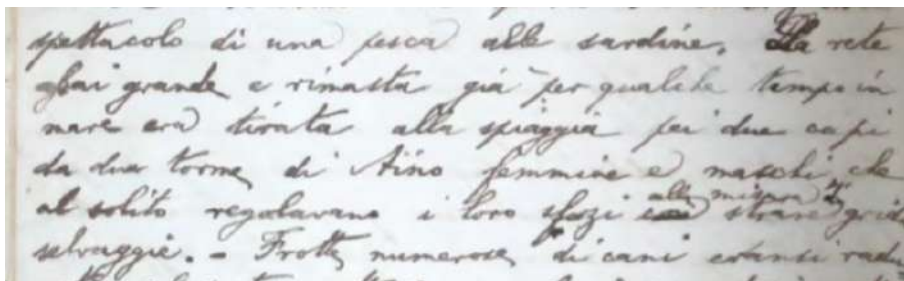 spettacolo di una pesca alle sardine. La rete
assai grande e rimasta già per qualche tempo in
mare era tirata alla spiaggia pei due capi
da due torme di Aino femmine e maschi, che
al solito regolavano i loro sforzi alla misura di strane grid
selvaggie. - Frotte numerose di cani eransi radu